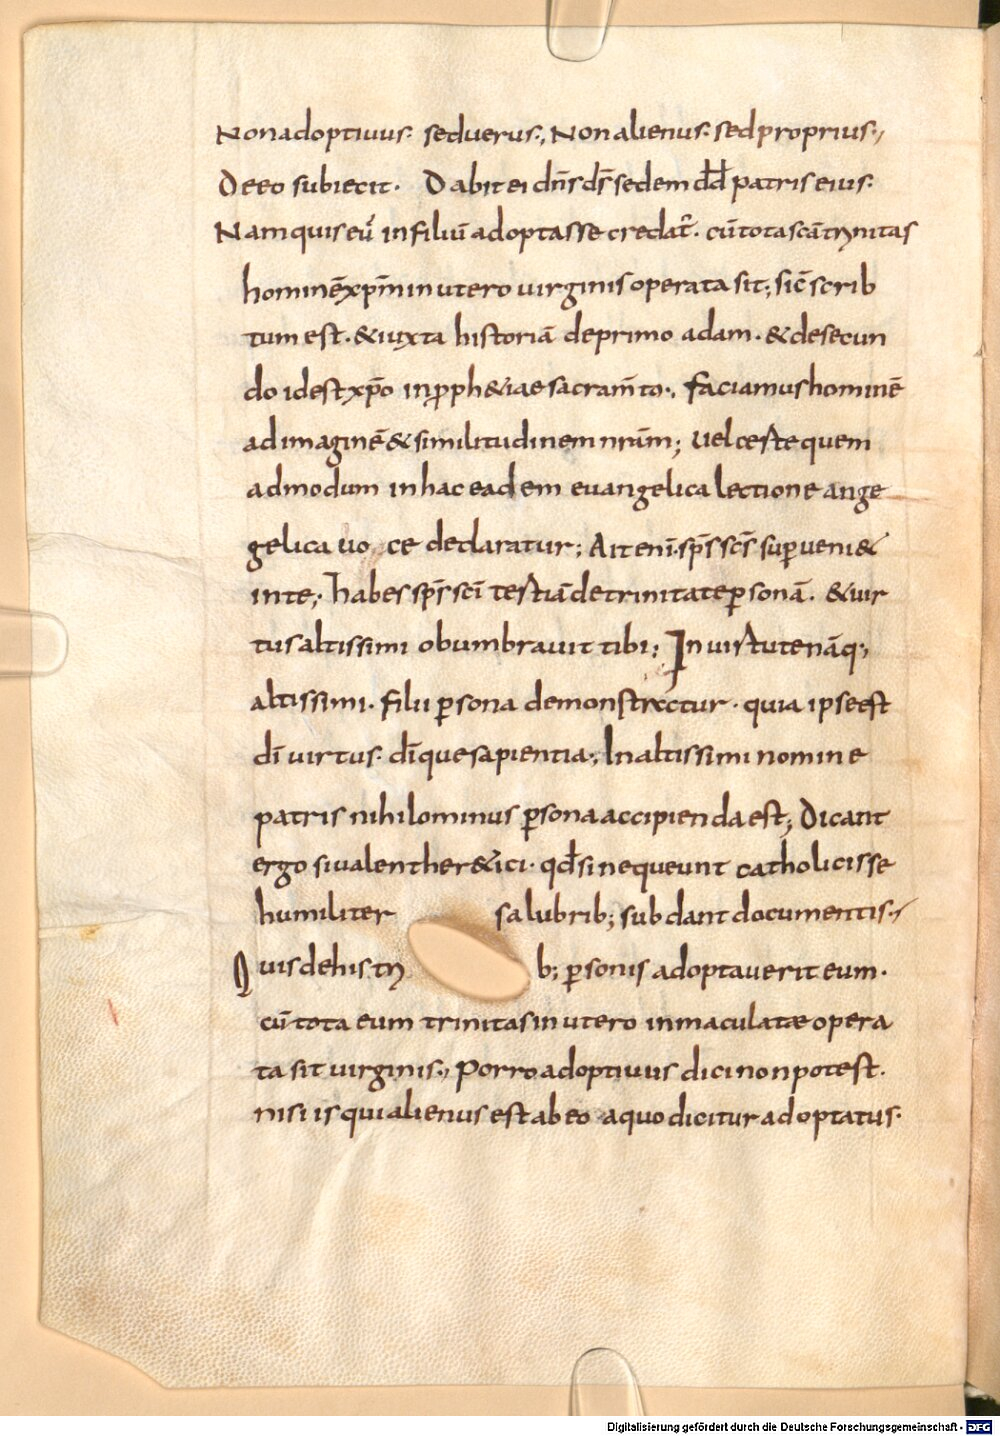 Non adoptiuus· sed uerus·, Non alienus· sed proprius·,
Deeo subiecit· Dabit ei dn̄s ds̄ sedem dd̄ patris eius·
Nam quis eū in filiū adoptasse credat᷑· cū tota scā trinitas
hominē xp̄m in utero uirginis operata sit; sic̄ scrib
tum est· & iuxta historiā de primo adam· & de secun
do id est xp̄o in ꝓph&iae sacram̄to·, Faciamus hominē
ad imaginē & similitudinem nr̄am; Uel certe quem
admodum in hac eadem euangelica lectione ange
gelica uoce declaratur; Ait eni· sp̄s scs̄ suꝑueni&
in te; Habes sp̄s sc̄i testiā de trinitate ꝑsonā· & uir
tus altissimi obumbrauit tibi; In uirtute nāq;
altissimi· filii ꝑsona demonstratur· quia ipse est
dī uirtus· dīque sapientia·, In altissimi nomine
patris nihilominus ꝑsona accipienda est; Dicant
ergo si ualent her&ici· qđ si nequeunt catholicis se
humiliter salubrib; subdant documentis·,
Quis de his trib; ꝑsonis adoptauerit eum·
cū tota eum trinitas in utero inmaculatae opera
ta sit uirginis·, Porro adoptiuus dici non potest·
nisi is qui alienus est ab eo a quo dicitur adoptatus·
Digitalisierung gefördert durch die Deutsche Forschungsgemeinschaft - DFG